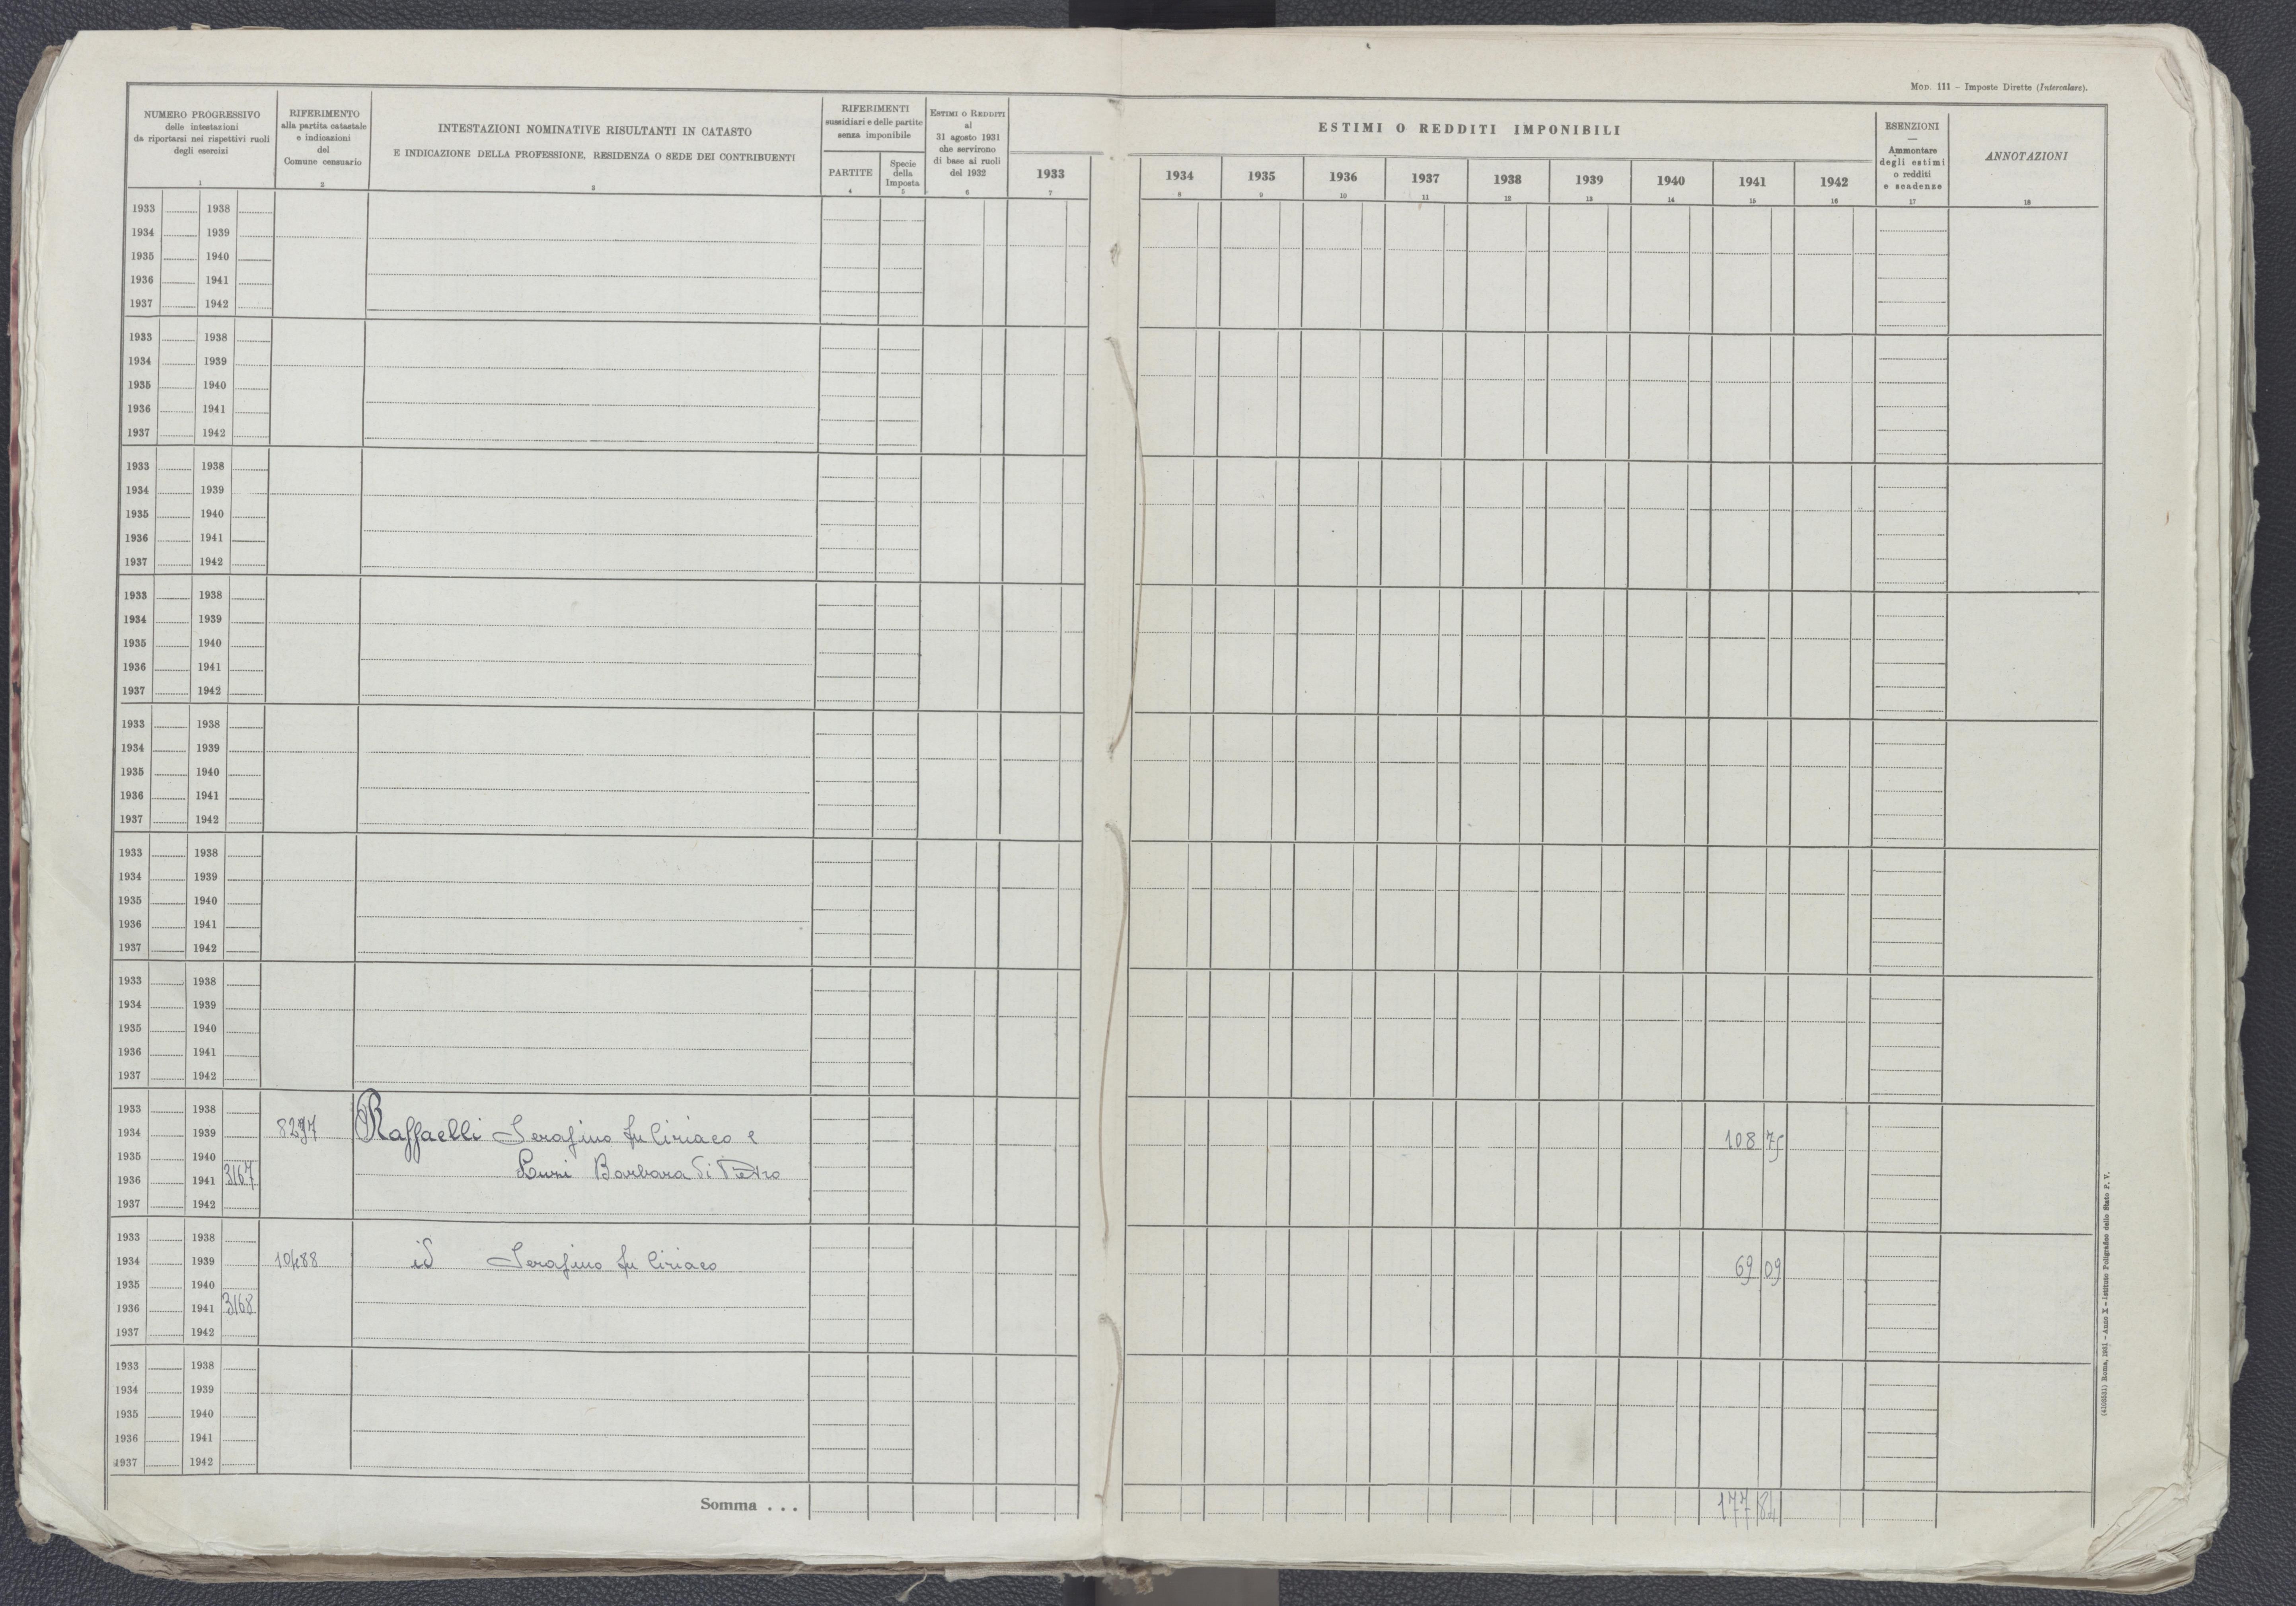 Mod. 111 – Imposte Dirette (Intercalare).
NUMERO PROGRESSIVO
delle intestazioni
da riportarsi nei rispettivi ruoli
degli esercizi
1
RIFERIMENTO
alla partita catastale
e indicazioni
del
Comune censuario
2
INTESTAZIONI NOMINATIVE RISULTANTI IN CATASTO
E INDICAZIONE DELLA PROFESSIONE, RESIDENZA O SEDE DEI CONTRIBUENTI
3
RIFERIMENTI
sussidiari e delle partite
senza imponibile
PARTITE
4
Specie
della
Imposta
5
Estimi o Redditi
al
31 agosto 1931
che servirono
di base ai ruoli
del 1932
6
ESTIMI O REDDITI IMPONIBILI
1933 1934 1935 1936 1937 1938 1939 1940 1941 1942
7 8 9 10 11 12 13 14 15 16
ESENZIONI
—
Ammontare
degli estimi
o redditi
e scadenze
17
ANNOTAZIONI
18
1933 1938
1934 1939
1935 1940
1936 1941
1937 1942
1933 1938
1934 1939
1935 1940
1936 1941
1937 1942
1933 1938
1934 1939
1935 1940
1936 1941
1937 1942
1933 1938
1934 1939
1935 1940
1936 1941
1937 1942
1933 1938
1934 1939
1935 1940
1936 1941
1937 1942
1933 1938
1934 1939
1935 1940
1936 1941
1937 1942
1933 1938
1934 1939
1935 1940
1936 1941
1937 1942
1933 1938
1934 1939 Raffaelli Serafino fu Ciriaco e 108 75
1935 1940
1936 1941 3167 Barbara di Pietro
1937 1942
1933 1938
1934 1939 10488 id Serafino fu Ciriaco 69 09
1935 1940
1936 1941 3168
1937 1942
1933 1938
1934 1939
1935 1940
1936 1941
1937 1942
Somma . . . 177 84
(4103531) Roma, 1931 – Anno X – Istituto Poligrafico dello Stato P. V.